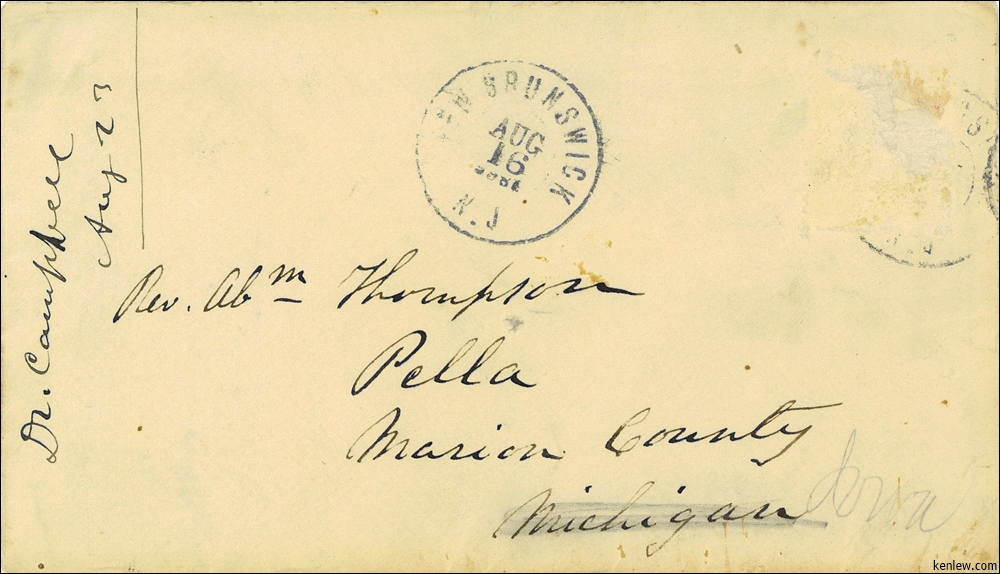 NEW BRUNSWICK
AUG
16
N.J
Dr. Campbell
Aug 23
Rev. Abm Thompson
Pella
Marion County
Michigan Iowa
kenlew.com